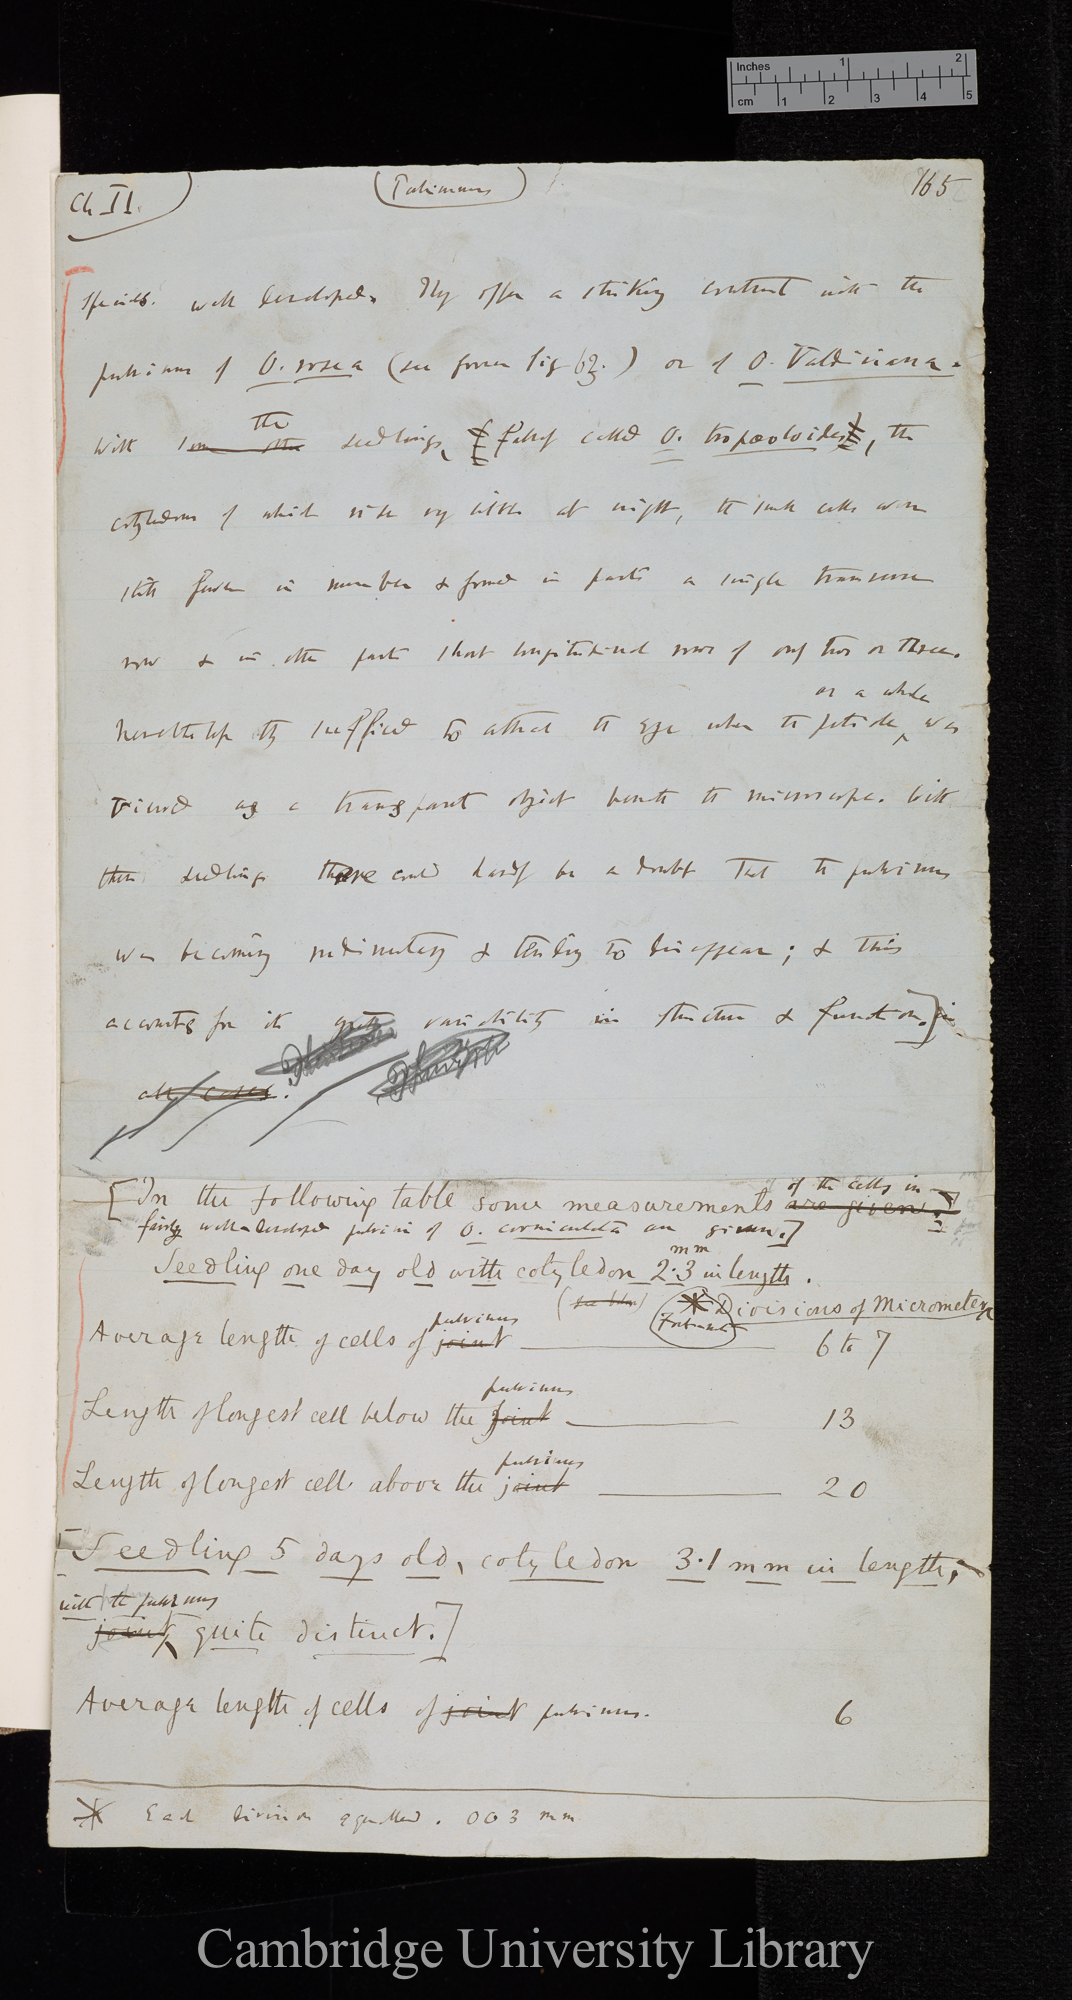 Inches 1 2
cm 1 2 3 4 5
Ch II.
(Pulvinus)
165
species. well developed. They offer a striking contrast with the
pulvinus of O. rosea (see former fig 63.) or of O. Valdiviana.
With some other the seedlings, falsely called O. tropæoloides, the
cotyledons of which rise very little at night, the small cells were
still fewer in number & formed in parts a single transverse
row & in other parts short longitudinal rows of only two or three.
or a whole
Nevertheless they sufficed to attract the eye when the petiole was
viewed as a transparent object beneath the microscope. With
these seedlings there could hardly be a doubt that the pulvinus
was becoming rudimentary & tending to disappear; & this
accounts for its great variability in structure & function.] in
all cases.
of the cells in
[In the following table some measurements are given.
fairly well-developed pulvini of O. corniculata are given.]
Seedling one day old with cotyledon 2.3 mm in length.
(see below) * Divisions of Micrometer
Footnote
pulvinus
Average length of cells of joint 6 to 7
pulvinus
Length of longest cell below the joint 13
pulvinus
Length of longest cell above the joint 20
[Seedling 5 days old, cotyledon 3.1 mm in length,
with the pulvinus
joint quite distinct.]
Average length of cells of joint pulvinus. 6
* Each division equalled .003 mm
Cambridge University Library